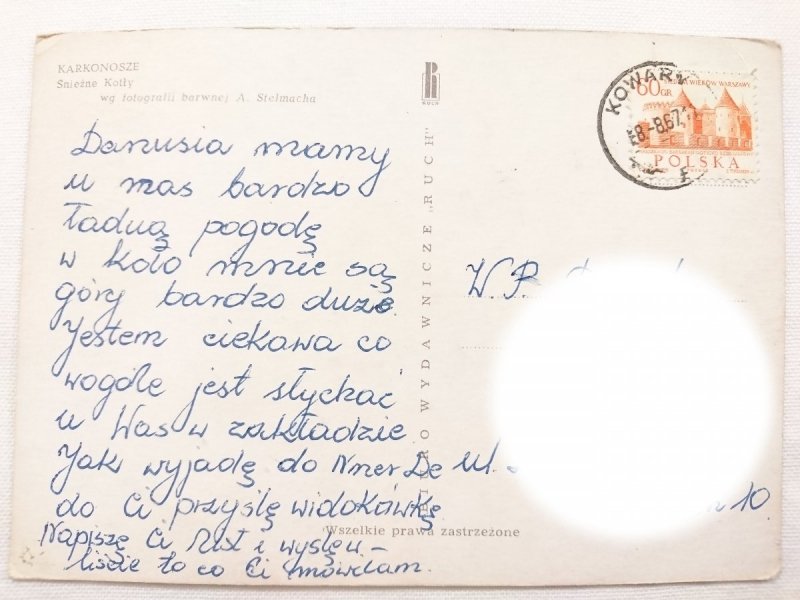 KARKONOSZE
Śnieżne Kotły
wg fotografii barwnej A. Stelmacha
Danusia mamy
u nas bardzo
ładną pogodę
w koło mnie są
góry bardzo duże.
Jestem ciekawa co
wogóle jest słychać
u Was w zakładzie
Jak wyjadę do NRD
do Ci przyślę widokówkę
Napiszę Ci list i wyślę u-
liście to co Ci mówiłam.
BIURO WYDAWNICZE „RUCH"
Wszelkie prawa zastrzeżone
RUCH
KOWARY
-8.8.67.
60 GR
WIEKÓW WARSZAWY
POLSKA
W. P.
ul.
10